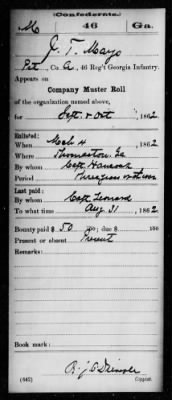 (Confederate.)
M 46 Ga.
J. T. Mayo
Pvt, Co. A, 46 Reg't Georgia Infantry.
Appears on
Company Muster Roll
of the organization named above,
for Sept & Oct, 1862
Enlisted:
When Mch 4, 1862
Where Thomaston, Ga
By whom Capt Hancock
Period Three years or the war
Last paid:
By whom Capt Leonard
To what time Aug 31, 1862
Bounty paid $ 50 100; due $ 100
Present or absent Present
Remarks:
Book mark:
(642) Copyist.